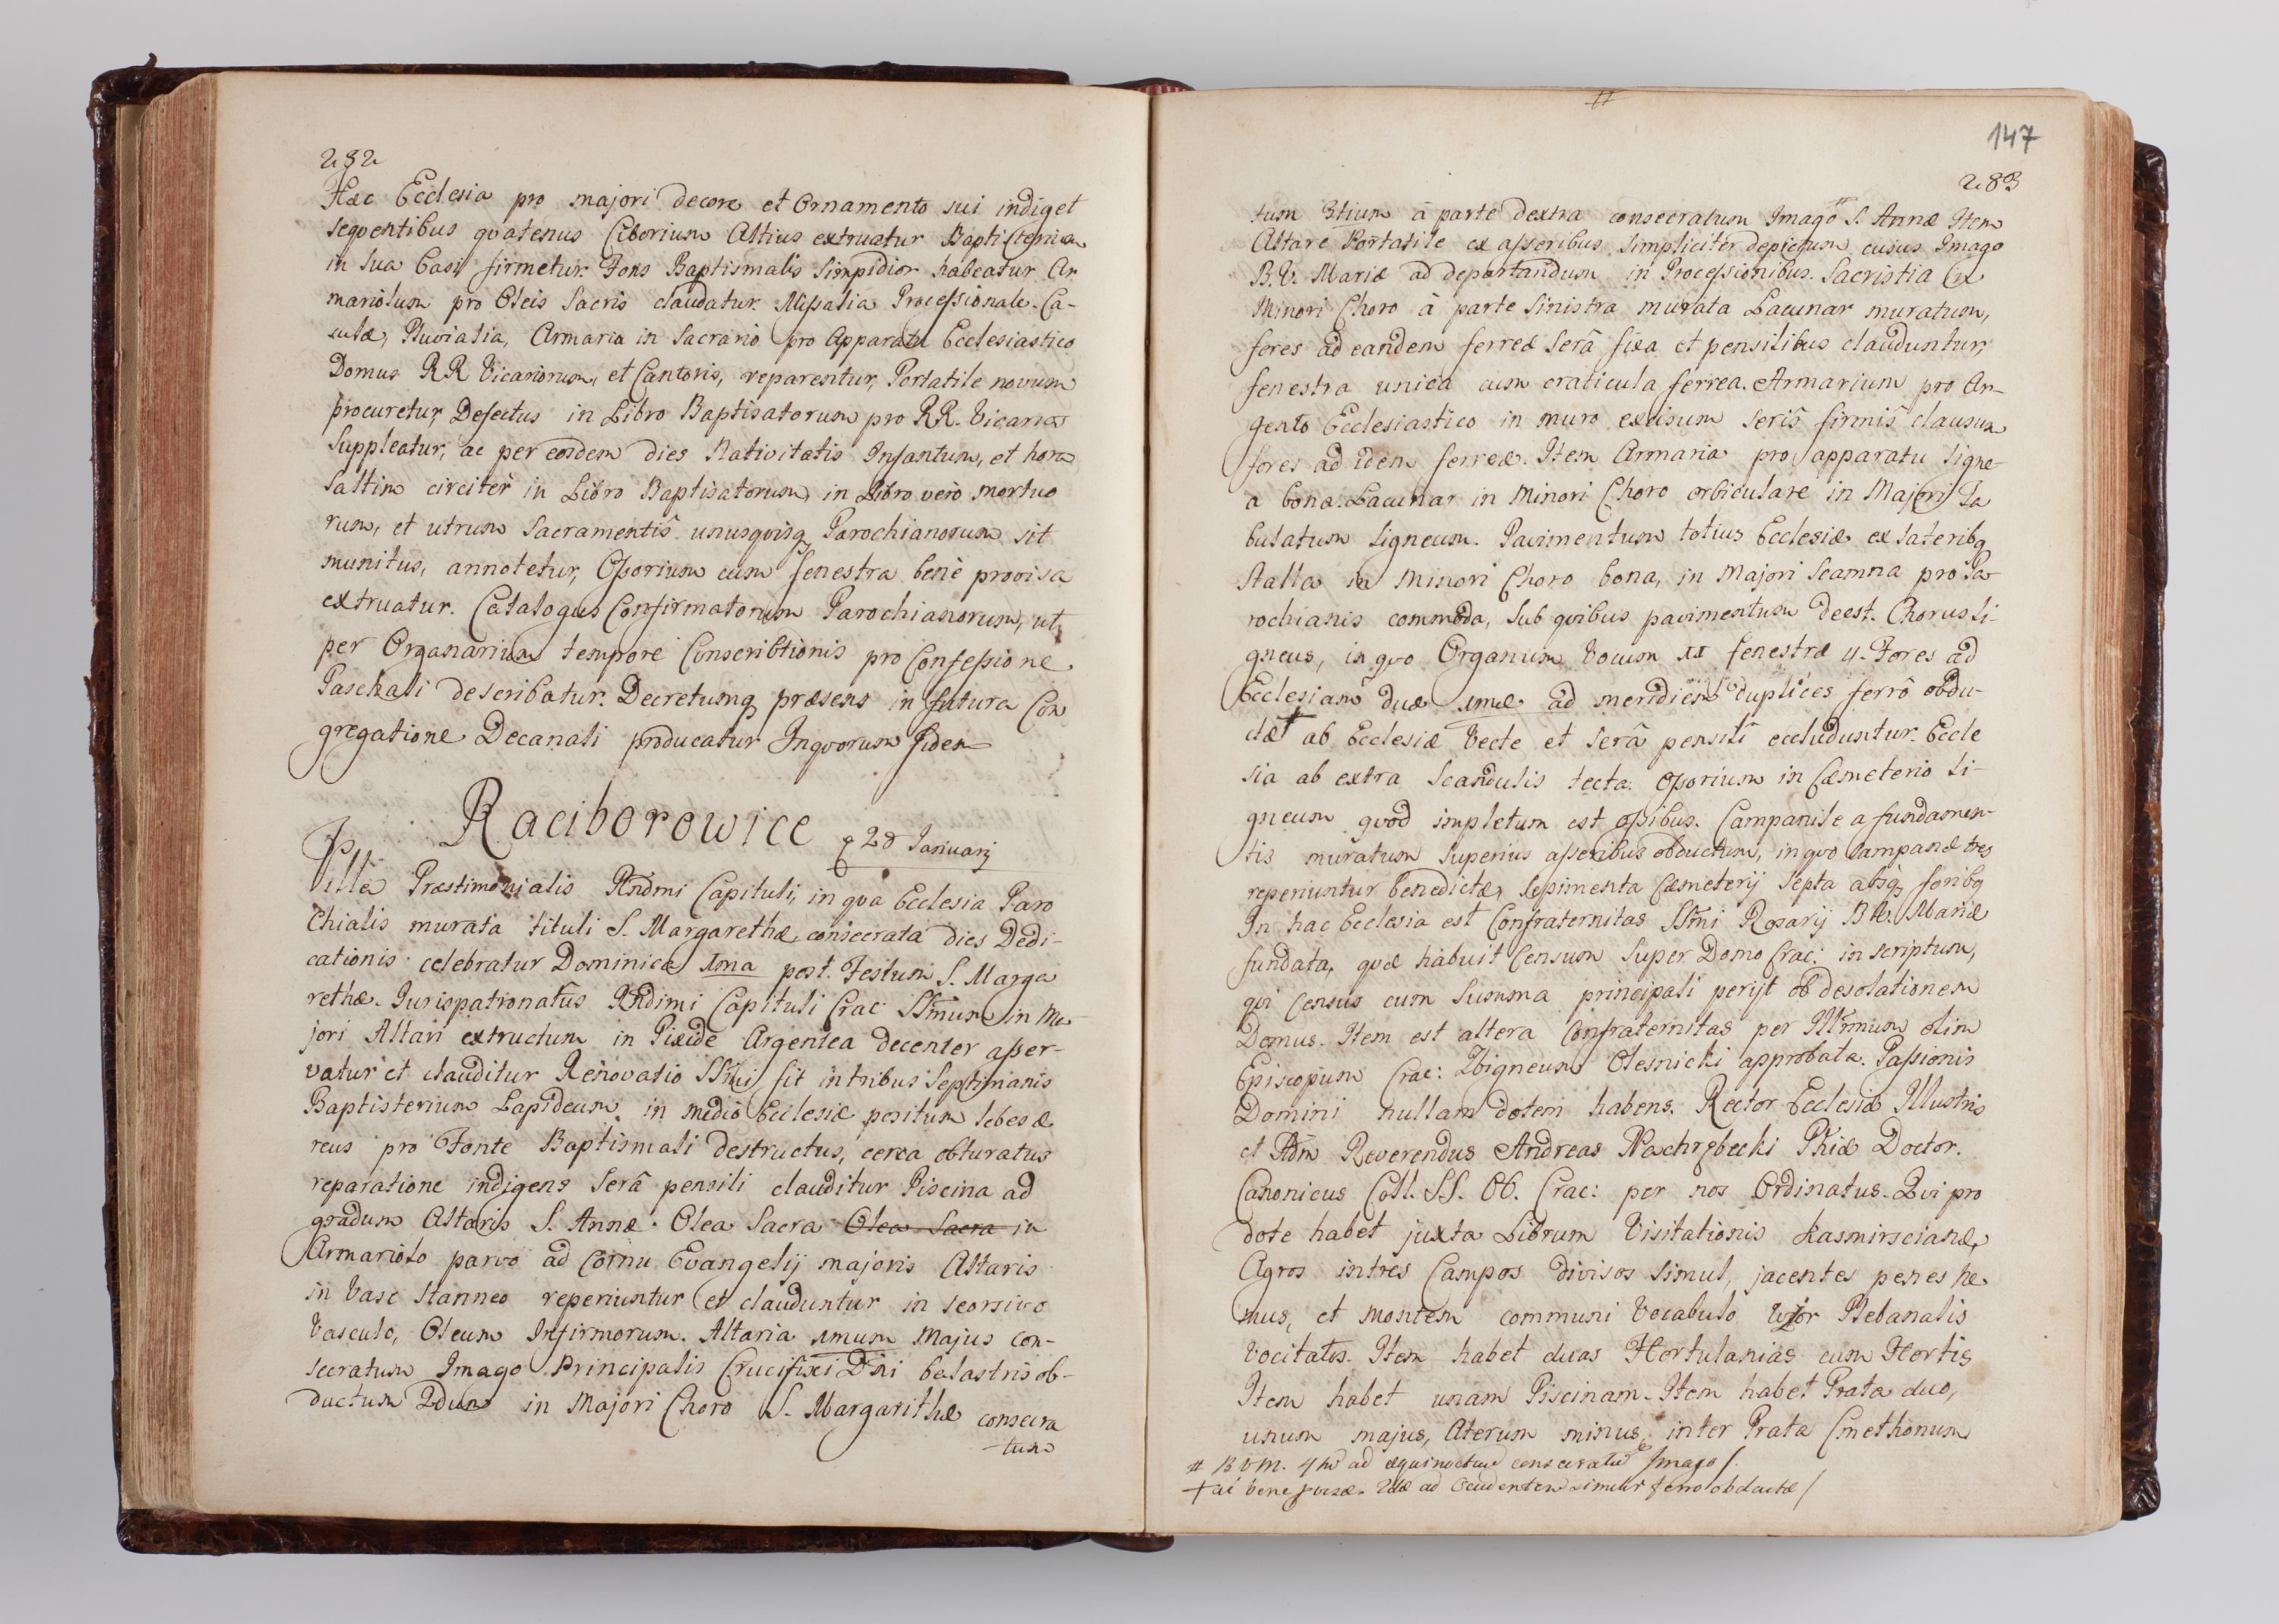 282
Hæc Ecclesia pro majori decore et Ornamento sui indiget
sequentibus quatenus Ciborium Altius extruatur Baptisterium
in sua basi firmetur. Fons Baptismalis limpidior habeatur Ar
mariolum pro Oleis Sacris claudatur. Missalia Processionale. Ca-
sulæ, Pluvialia, Armaria in Sacrario pro Apparatu Ecclesiastico
Domus RR Vicariorum, et Cantoris, reparentur, Portatile novum
procuretur, Defectus in Libro Baptisatorum pro RR. Vicarios
Suppleatur, ac per eosdem dies Nativitatis Infantum, et hora
saltim circiter in Libro Baptisatorum, in Libro vero mortuo
rum, et utrum Sacramentis unusquisq Parochianorum sit
munitus, annotetur, Ossorium cum fenestra bene provisa
extruatur. Catalogus Confirmatorum Parochianorum, ut
per Organarium tempore Conscribtionis pro Confessione
Paschali describatur. Decretumq præsens in futura Con
gregatione Decanali producatur Inquorum fidem
Raciborowice 28 Januarij
Villa Præstimonialis Rndmi Capituli, in qva Ecclesia Paro
chialis murata tituli S. Margarethæ consecrata dies Dedi-
cationis celebratur Dominica 1ma post Festum S. Marga
rethæ. Jurispatronatus Rndimi Capituli Crac: SSmum in Ma-
jori Altari extructum in Pixide Argentea decenter asser-
vatur et clauditur Renovatio SSmi fit in tribus Septimanis
Baptisterium Lapideum in medio Ecclesiæ positum lebes æ
reus pro Fonte Baptismali destructus, cerca obturatus
reparatione indigens Serâ pensili clauditur Piscina ad
gradum Altaris S. Annæ. Olea Sacra Olea Sacra in
Armariolo parvo ad Cornu Evangelij majoris Altaris
in Vase stanneo reperiuntur et clauduntur in seorsivo
Vasculo, Oleum Infirmorum. Altaria 1mum Majus con-
secratum Imago Principalis Crucifixi Dni balastris ob-
ductum 2dum in Majori Choro S. Margarithæ consecra
tum
#
147
283
tum 3tium à parte dextra consecratum Imago # S. Annæ Item
Altare Portatile ex asseribus simpliciter depictum cujus Imago
B.V. Mariæ ad deportandum in Processionibus. Sacristia ex
Minori Choro à parte Sinistra murata Lacunar muratum,
fores ad eandem ferreæ Serâ fixa et pensilibus clauduntur,
fenestra unica cum craticula ferrea. Armarium pro Ar-
gento Ecclesiastico in muro excisum seris firmis clausum
fores ad idem ferreæ. Item Armaria pro apparatu ligne-
a bona. Lacunar in Minori Choro orbiculare in Majori Ta
bulatum Ligneum. Pavimentum totius Ecclesiæ ex lateribq
Stalla in Minori Choro bona, in Majori Scamna pro Pa-
rochianis commoda, sub quibus pavimentum deest. Chorus Li-
gneus, in quo Organum Vocum XI fenestræ 4. Fores ad
Ecclesiam duæ 1mæ ad meridiem duplices ferrô obdu-
ctæ † ab Ecclesiæ Vecte et serâ pensili eccluduntur. Eccle
sia ab extra Scandulis tecta. Ossorium in Cæmeterio li-
gneum quod impletum est ossibus. Campanile a fundamen-
tis muratum Superius asseribus obductum, in quo Campanæ tres
reperiuntur benedictæ, Sepimenta Cæmeterij septa absq foribq
In hac Ecclesia est Confraternitas SSmi Rosarij B.V. Mariæ
fundata, quæ habuit Censum Super Domo Crac: in scriptum,
qui Census cum Summa principali perijt ob desolationem
Domus. Item est altera Confraternitas per Illmum olim
Episcopum Crac: Zbigneum Olesnicki approbata. Passionis
Domini nullam dotem habens. Rector Ecclesiæ Illustris
et Adm Reverendus Andreas Phiæ Doctor.
Canonicus Coll. S.S. OO. Crac: per nos Ordinatus. Qui pro
dote habet juxta Librum Visitationis Kasmirscianæ
Agros in tres Campos divisos simul, jacentes penes ne
mus, et montem communi Vocabulo Plebanalis
Vocitatos. Item habet duas Hortulanias cum Hortis
Item habet unam Piscinam. Item habet Prata duo,
unum majus, Aterum minus, inter Prata Cmethonum
# B V M. 4tu ad consecratu Imago /.
† ad Occidentem similiter ferro obductæ /